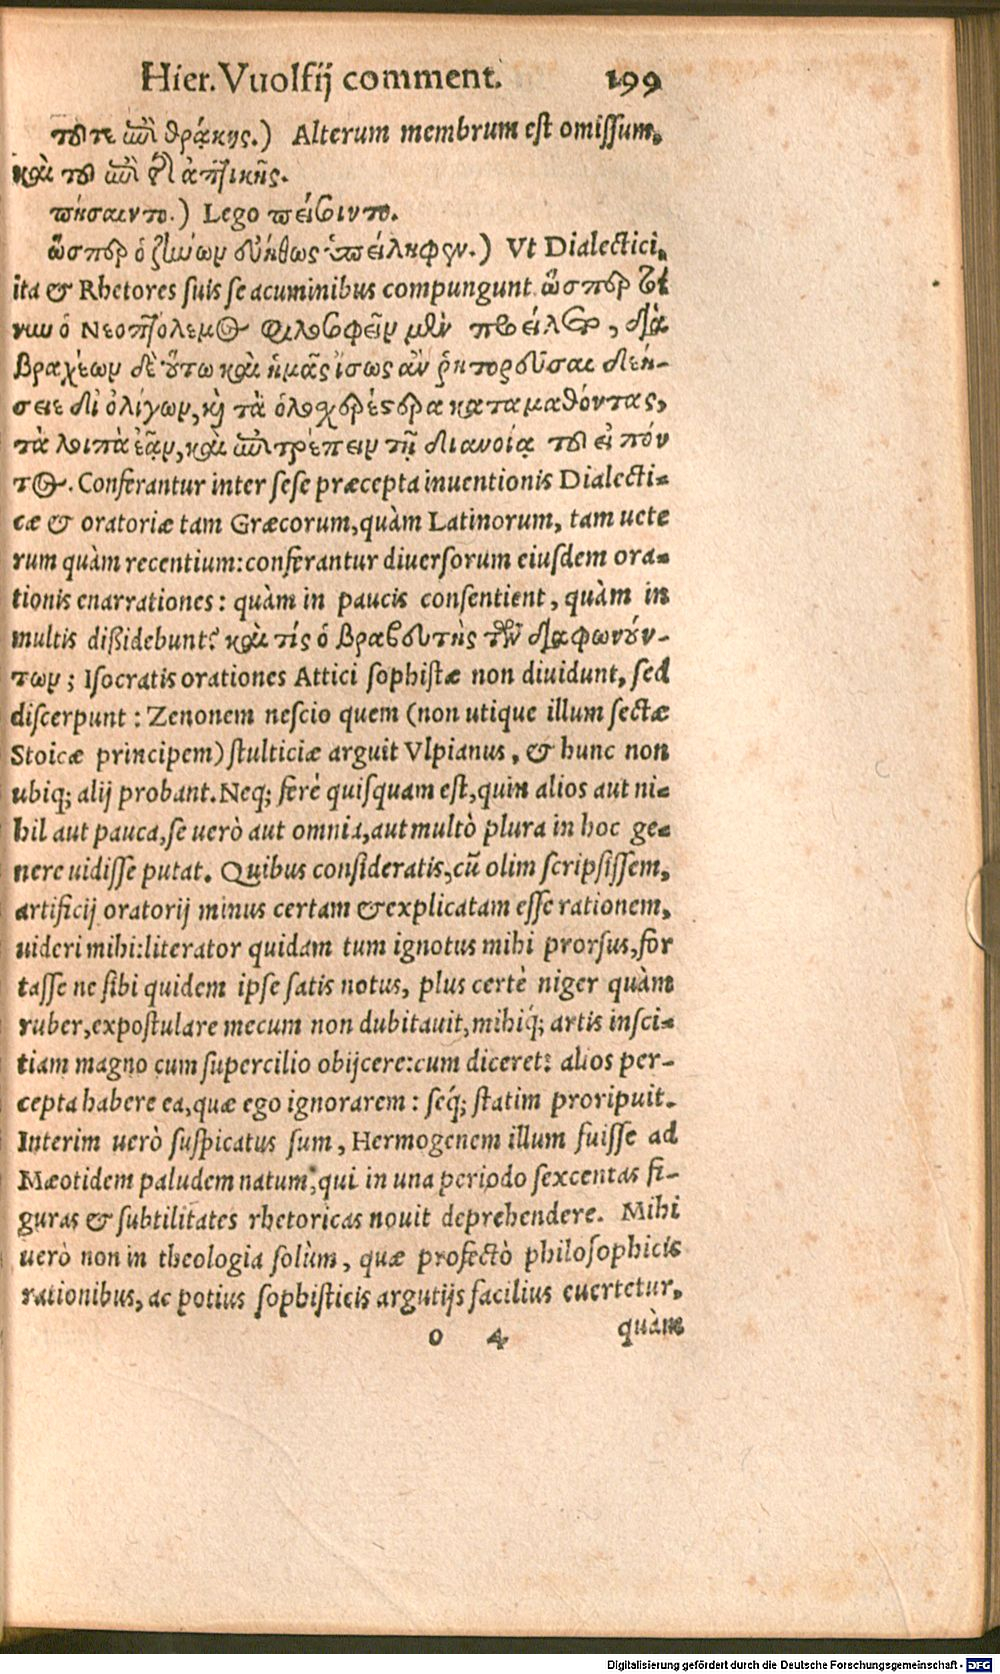 Hier. Vuolfij comment. 199
τοῦ τε ἐπὶ θρᾴκης.) Alterum membrum est omissum,
καὶ τοῦ ἐπὶ τῆς ἀττικῆς.
πήσαιντο.) Lego πείσοιντο.
ὥσπερ ὁ ζήνων συνήθως ὑπείληφεν.) Vt Dialectici,
ita & Rhetores suis se acuminibus compungunt. ὥσπερ
ὁ Νεοπτόλεμος φιλοσοφεῖν μὲν , διὰ
βραχέων δὲ οὕτω καὶ ἡμᾶς ἴσως ἂν ῥητορεῦσαι δεή-
σειε δι' ὀλίγων, καὶ τὰ ὁλοσχερέστερα καταμαθόντας,
τὰ λοιπὰ ἐᾷν, καὶ ἐπιτρέπειν τῇ διανοίᾳ τοῦ εἰπόν
τος. Conferantur inter sese præcepta inuentionis Dialecti=
cæ & oratoriæ tam Græcorum, quàm Latinorum, tam uete
rum quàm recentium: conferantur diuersorum eiusdem ora=
tionis enarrationes: quàm in paucis consentient, quàm in
multis dißidebunt? καὶ τίς ὁ βραβευτὴς τῶν διαφωνούν-
των; Isocratis orationes Attici sophistæ non diuidunt, sed
discerpunt: Zenonem nescio quem (non utique illum sectæ
Stoicæ principem) stulticiæ arguit Vlpianus, & hunc non
ubiq; alij probant. Neq; ferè quisquam est, quin alios aut ni=
hil aut pauca, se uerò aut omnia, aut multò plura in hoc ge=
nere uidisse putat. Quibus consideratis, cū olim scripsissem,
artificij oratorij minus certam & explicatam esse rationem,
uideri mihi: literator quidam tum ignotus mihi prorsus, for
tasse ne sibi quidem ipse satis notus, plus certè niger quàm
ruber, expostulare mecum non dubitauit, mihiq́; artis insci=
tiam magno cum supercilio obijcere: cum diceret: alios per-
cepta habere ea, quæ ego ignorarem: seq́; statim proripuit.
Interim uerò suspicatus sum, Hermogenem illum fuisse ad
Mæotidem paludem natum, qui in una periodo sexcentas fi-
guras & subtilitates rhetoricas nouit deprehendere. Mihi
uerò non in theologia solùm, quæ profectò philosophicis
rationibus, ac potius sophisticis argutijs facilius euertetur,
o 4 quàm
Digitalisierung gefördert durch die Deutsche Forschungsgemeinschaft - DFG